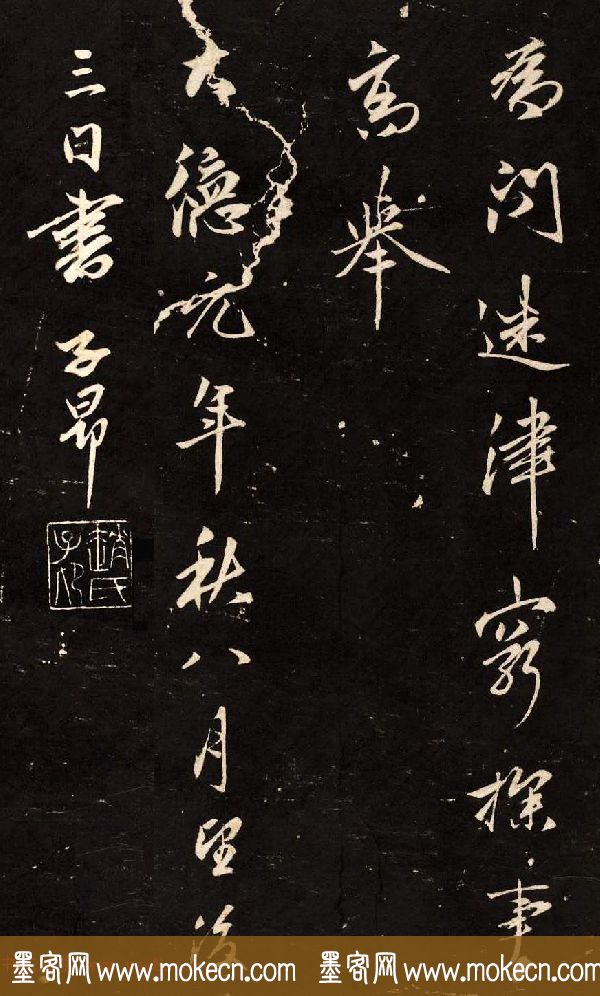 為問迷津窮探事
高舉
大德元年秋八月望後
三日書子昂
趙氏子昂
墨客网 www.mokecn.com 墨客网 www.mokecn.com